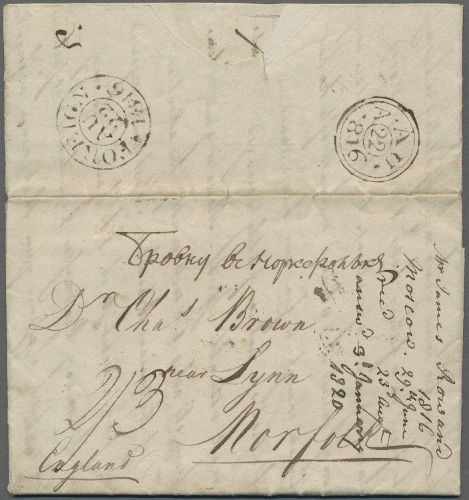 FOREIGN 1816 22
A AU 22 816
Бровну въ Норкфолькъ
Dr. Chas Brown
near Lynn
Norfolk
England
2/3
Mr James Rowand
1816
Moscow. 29th June
recd 23 Augt
answd 3d January
1820